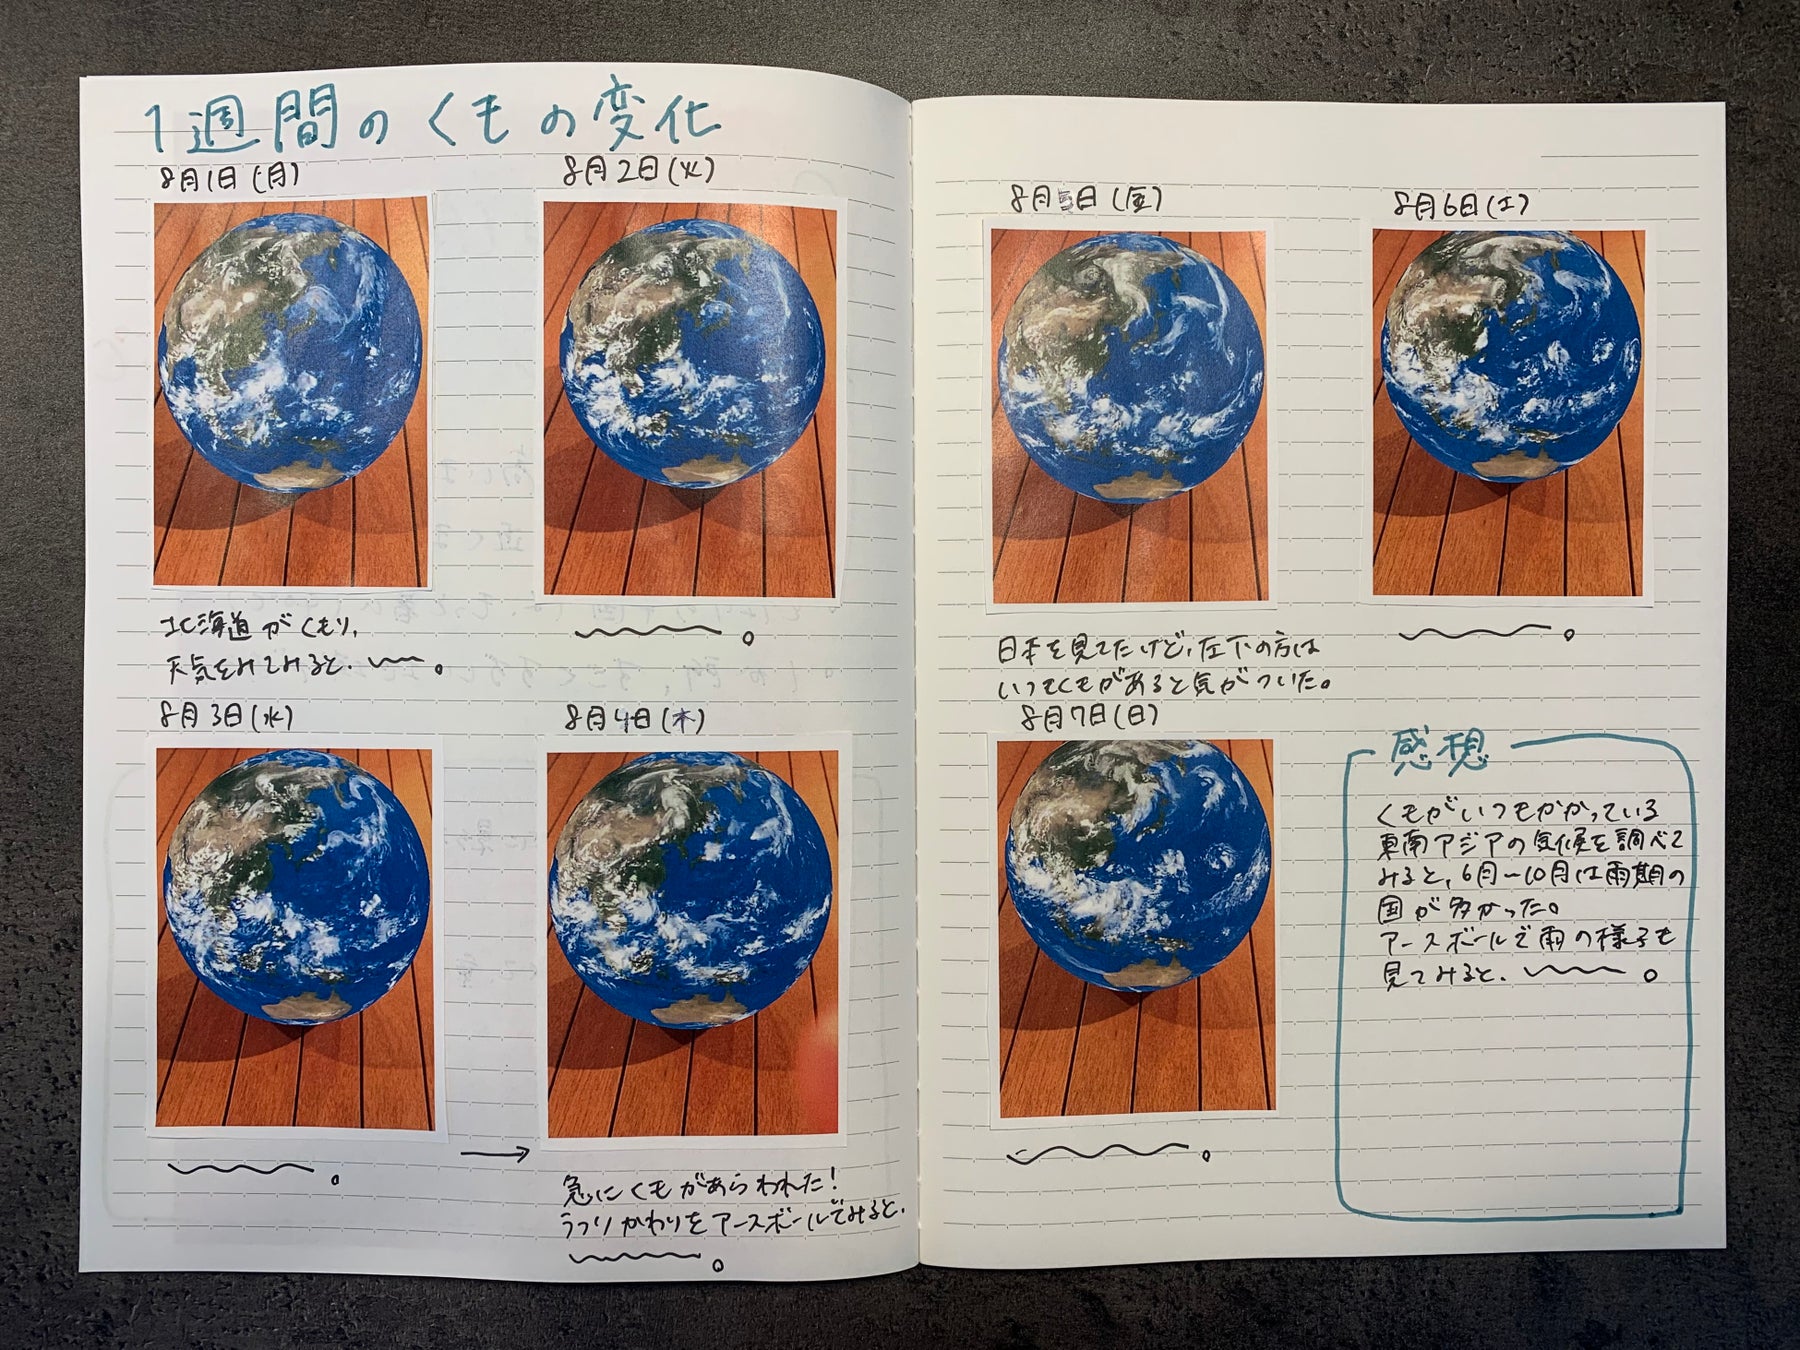 1週間のくもの変化
8月1日(月)
8月2日(火)
北海道がくもり、
天気をみてみると、
。
。
8月3日(水)
8月4日(木)
。
→
急にくもがあらわれた!
うつりかわりをアースボールでみると、
。
8月5日(金)
8月6日(土)
日本を見てたけど、左下の方は
いつもくもがあると気がついた。
。
8月7日(日)
。
感想
くもがいつもかかっている
東南アジアの気候を調べて
みると、6月~10月は雨期の
国が多かった。
アースボールで雨の様子も
見てみると、 。